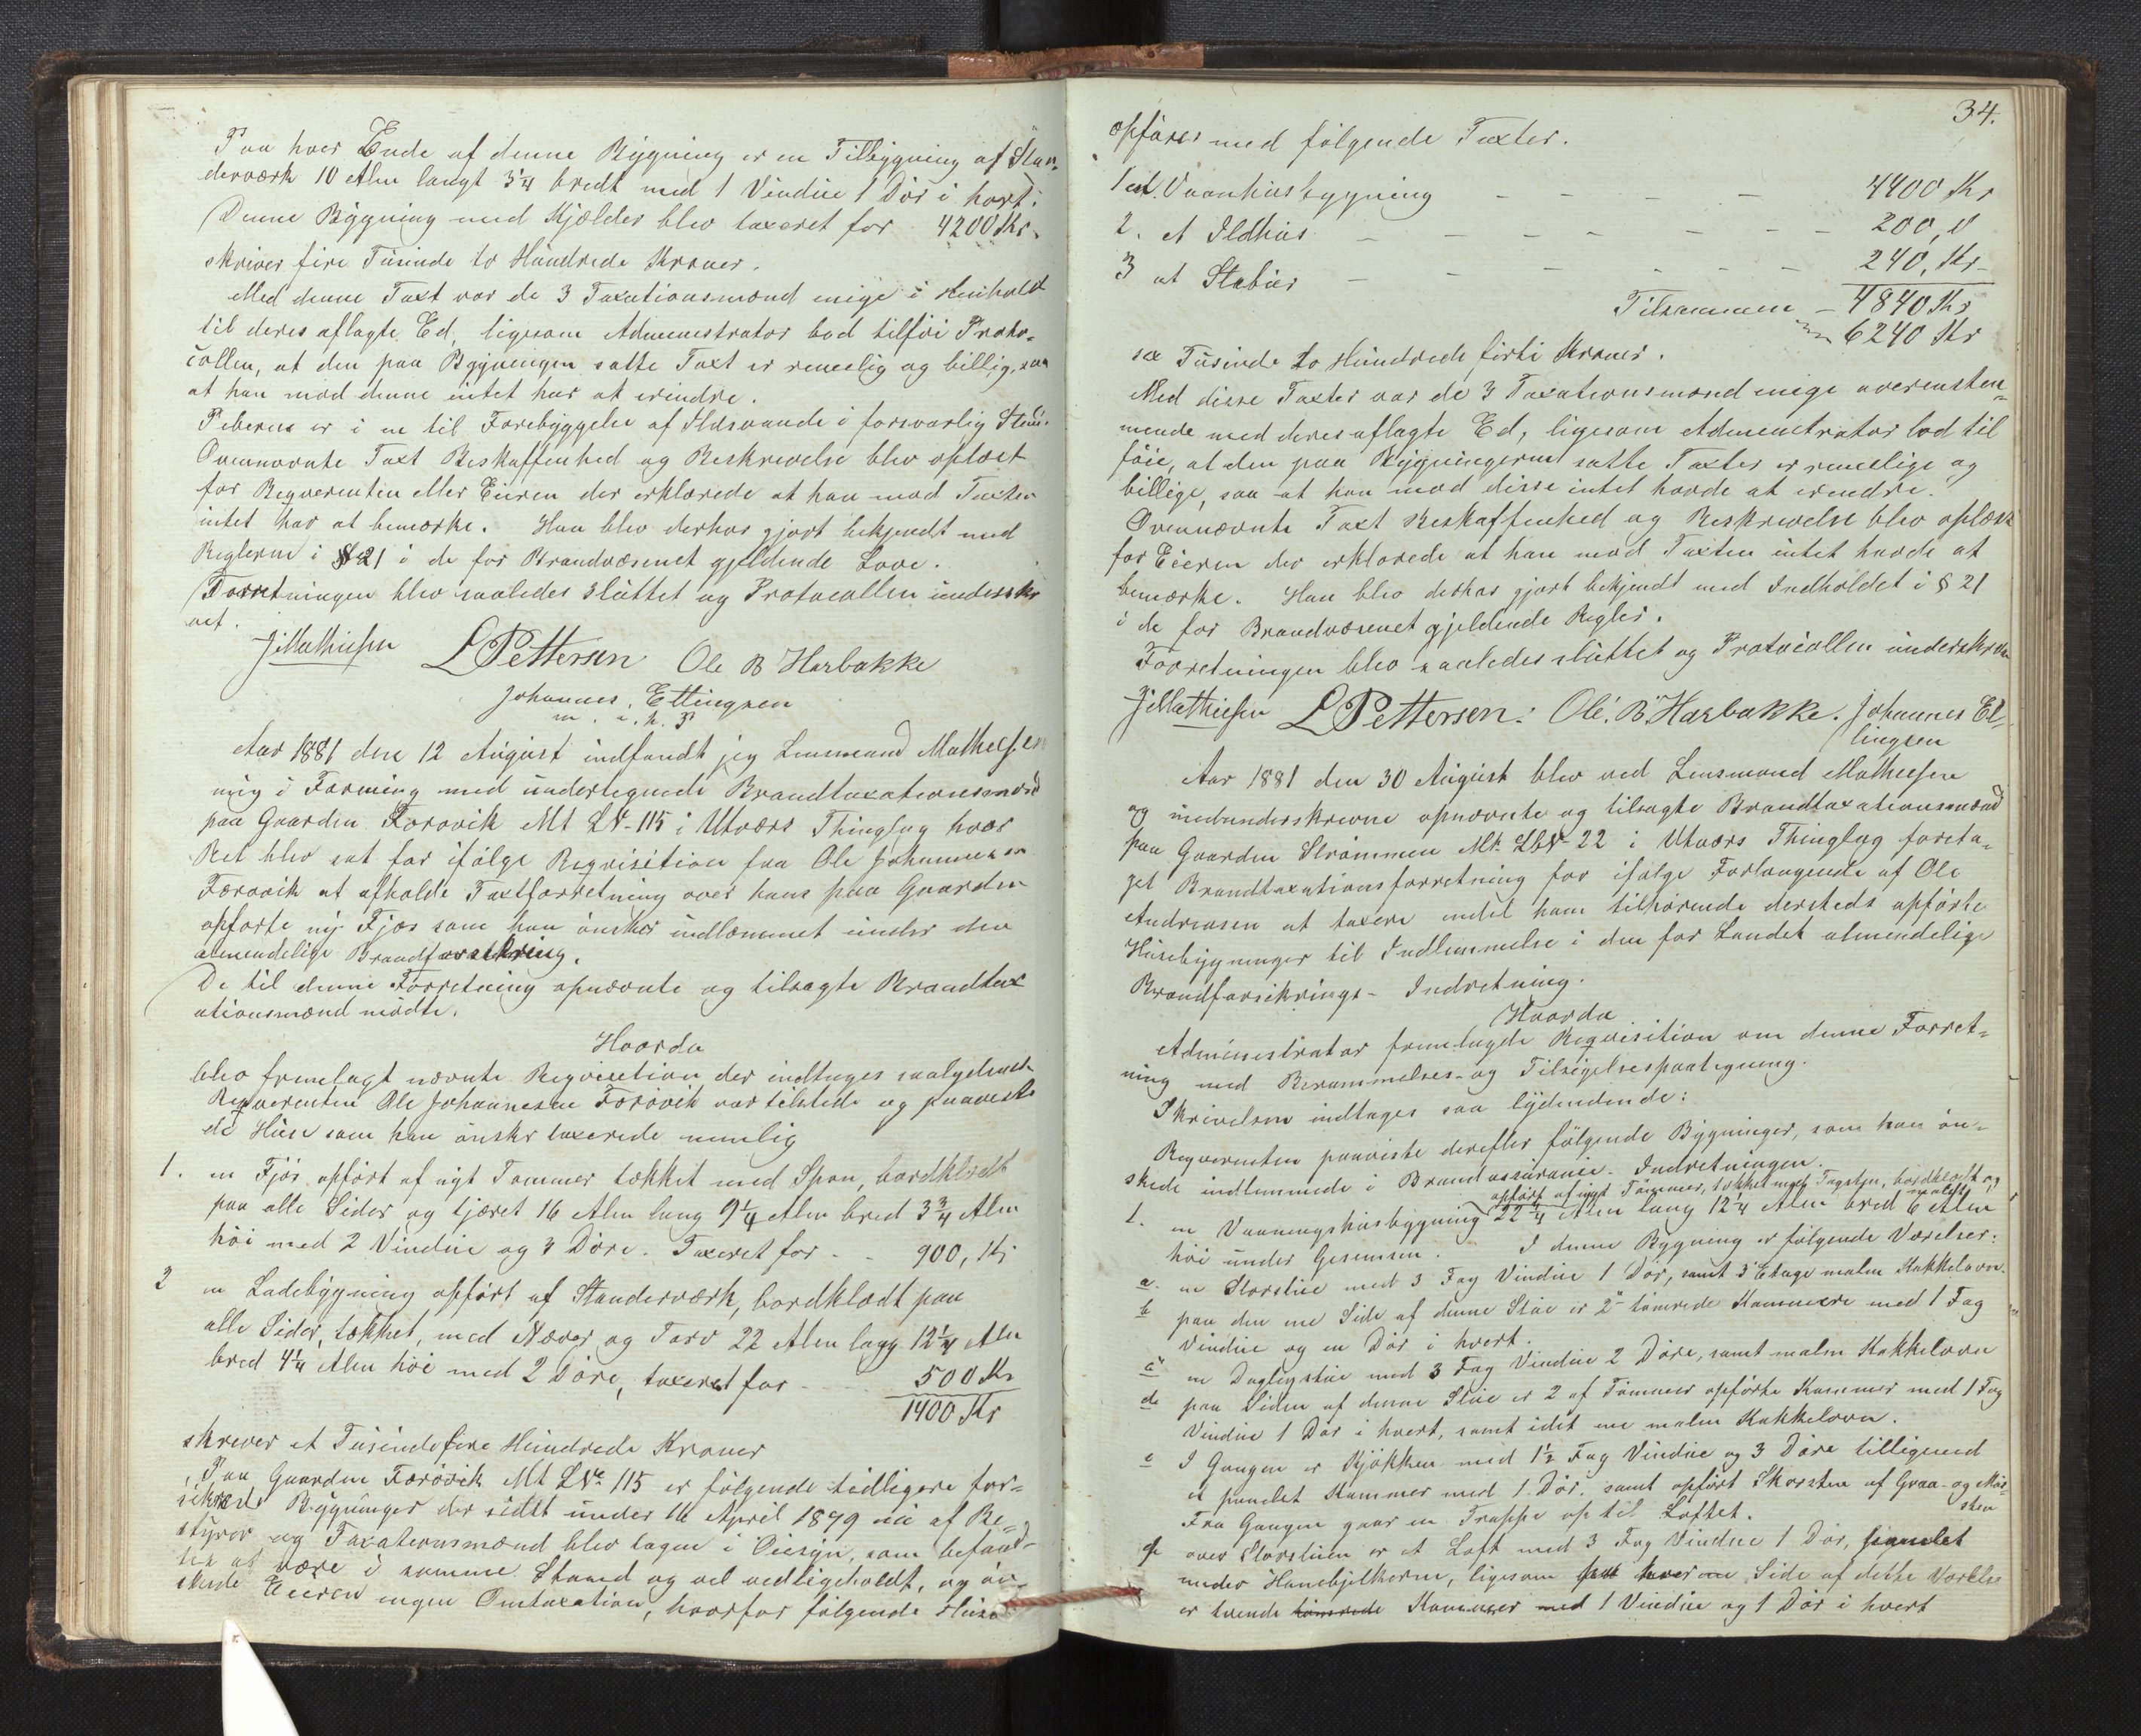 Paa hver Ende af denne Bygning er en Tilbygning af Stan-
derværk 10 Alen langt 3¼ bredt med 1 Vindue 1 Dør i hvert.
Denne Bygning med Kjælder blev taxeret for 4200 Kr.
skriver fire Tusinde to Hundrede Kroner.
Med denne Taxt var de 3 Taxationsmænd enige i Henhold
til deres aflagte Ed, ligesom Administrator lod tilføi Proto-
collen, at den paa Bygningen satte Taxt er rimelig og billig, saa
at han mod denne intet har at erindre.
Piberne er i en til Forebyggelse af Ildsvaade i forsvarlig Stand.
Ovennævnte Taxt Beskaffenhed og Beskrivelse blev oplæst
for Reqverenten eller Eieren der erklærede at han mod Taxten
intet har at bemærke. Han blev derhos gjort bekjendt med
Reglerne i § 21 i de for Brandvæsenet gjeldende Love.
Forretningen blev saaledes sluttet og Protocollen underskr
vet.
J Mathiesen L Pettersen Ole B Harbakke
Johannes Ellingsen
m. i. h. P
Aar 1881 den 12 August indfandt jeg Lensmand Mathiesen
mig i Forening med undertegnede Brandtaxationsmænd
paa Gaarden Færøvik Mt LN- 115 i Utværs Thinglag hvor
Ret blev sat for ifølge Reqvisition fra Ole Johannesen
Færøvik at afholde Taxtforretning over hans paa Gaarden
opførte ny Fjøs som han ønsker indlemmet under den
almendelige Brandforsikring.
De til denne Forretning opnævnte og tilsagte Brandtax
ationsmænd mødte.
Hvorda
blev fremlagt nævnte Reqvisition der indtages saalydende
Reqverenten Ole Johannesen Færøvik var tilstede og paaviste
de Huse som han ønsker taxerede nemlig
1. en Fjøs opført af nyt Tømmer tækket med Spon, bordklædt
paa alle Sider og tjæret 16 Alen lang 9¼ Alen bred 3¾ Alen
høi med 2 Vindue og 3 Døre. Taxeret for - - 900, Kr
2 en Ladebygning opført af Standerværk, bordklædt paa
alle Sider, tækket med Næver og Torv 22 Alen lang 12¼ Alen
bred 4¼ Alen høi med 2 Døre, taxeret for - - 500 Kr
1400 Kr
skriver et Tusinde fire Hundrede Kroner
Paa Gaarden Færøvik Mt LN 115 er følgende tidligere for-
sikrede Bygninger der sidst under 16 April 1879 af Be-
styrer og Taxationsmænd blev tagen i Øiesyn, som befand-
tes at være i samme Stand og vel vedligeholdt, og øn-
skede Eieren ingen Omtaxation, hvorfor følgende Huse
34.
opføres med følgende Taxter.
1 et Vaanhusbygning - - - - 4400 Kr
2. et Ildhus - - - - - - - 200, "
3 et Stabur - - - - - - 240, Kr-
Tilsammen - 4840 Kr
6240 Kr
sex Tusinde to Hundrede førti Kroner.
Med disse Taxter var de 3 Taxationsmænd enige overensstem-
mende med deres aflagte Ed, ligesom Administrator lod til
føie, at den paa Bygningerne satte Taxter er rimelige og
billige, saa at han mod disse intet havde at erindre.
Ovennævnte Taxt Beskaffenhed og Beskrivelse blev oplæst
for Eieren der erklærede at han mod Taxten intet havde at
bemærke. Han blev derhos gjort bekjendt med Indholdet i § 21
i de for Brandvæsenet gjeldende Regler.
Forretningen blev saaledes sluttet og Protocollen underskreven
J Mathiesen L Pettersen. Ole. B. Harbakke. Johannes El-
lingsen
Aar 1881 den 30 August blev ved Lensmand Mathiesen
og medunderskrevne opnævnte og tilsagte Brandtaxationsmænd
paa Gaarden Strømmen Mt. LbN- 22 i Utværs Thinglag foreta-
get Brandtaxationsforretning for ifølge Forlangende af Ole
Andreasen at taxere endel ham tilhørende dersteds opførte
Husebygninger til Indlemmelse i den for Landet almendelige
Brandforsikrings- Indretning.
Hvorda
Administrator fremlagde Reqvisition om denne Forret-
ning med Berammelses- og Tilsigelsespaategning.
Skrivelsen indtages saa lydendende:
Reqverenten paaviste derefter følgende Bygninger, som han øn-
skede indlemmede i Brandassurance- Indretningen.
opført af nyt Tømmer, tækket med Tagsten, bordklædt og
malet
1. en Vaaningshusbygning 22¼ Alen lang 12¼ Alen bred 6 Alen
høi under Gesimsen. I denne Bygning er følgende Værelser:
a. en Storstue med 3 Fag Vindue 1 Dør, samt 3 Etage malm Kakkelovn.
b paa den ene Side af denne Stue er 2 tømrede Kammere med 1 Fag
Vindue og en Dør i hvert.
c en Dagligstue med 3 Fag Vindue 2 Døre, samt malm Kakkelovn
d paa Siden af denne Stue er 2 af Tømmer opførte Kammer med 1 Fag
Vindue 1 Dør i hvert, samt i det ene malm Kakkelovn.
e I Gangen er Kjøkken med 1½ Fag Vindue og 3 Døre tilligemed
et panelet Kammer med 1. Dør. samt opført Skorsten af Graa- og Mur-
sten
Fra Gangen gaar en Trappe op til Loftet.
f over Storstuen er et Loft med 3 Fag Vindue 1 Dør, panelet
under Hanebjelkerne, ligesom paa hver Side af dette Værelse
er tvende tømrede Kammer med 1 Vindue og 1 Dør i hvert